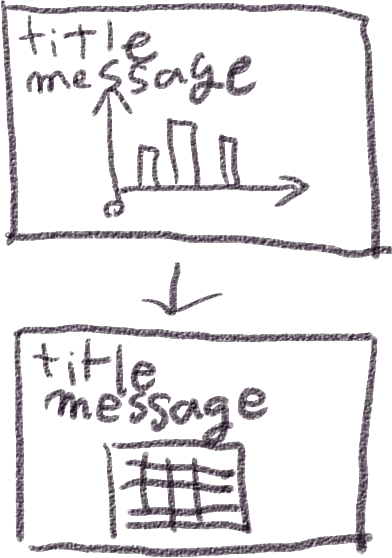 title
message
title
message